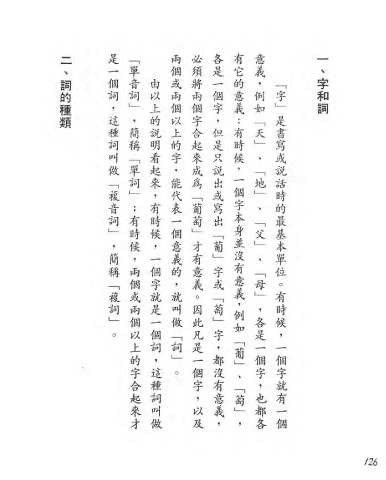 一、字和詞
「字」是書寫或說話時的最基本單位。有時候，一個字就有一個
意義，例如「天」、「地」、「父」、「母」，各是一個字，也都各
有它的意義；有時候，一個字本身並沒有意義，例如「葡」、「萄」，
各是一個字，但是只說出或寫出「葡」字或「萄」字，都沒有意義，
必須將兩個字合起來成為「葡萄」才有意義。因此凡是一個字，以及
兩個或兩個以上的字，能代表一個意義的，就叫做「詞」。
由以上的說明看起來，有時候，一個字就是一個詞，這種詞叫做
「單音詞」，簡稱「單詞」；有時候，兩個或兩個以上的字合起來才
是一個詞，這種詞叫做「複音詞」，簡稱「複詞」。
二、詞的種類
126